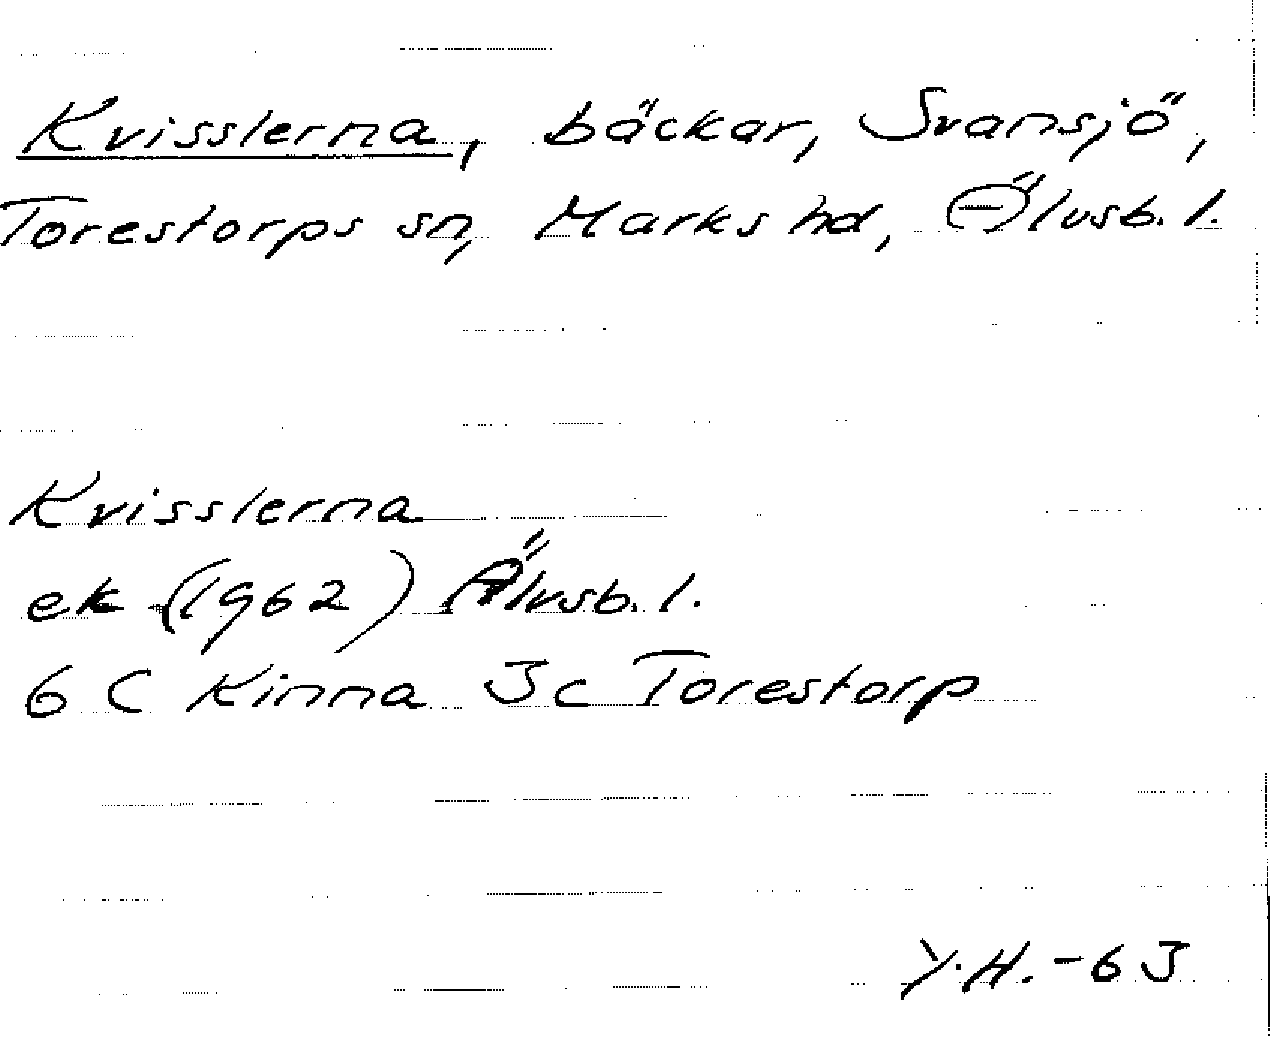 Kvisslerna, bäckar, Svansjö,
Torestorps sn, Marks hd, Älvsb. l.
Kvisslerna
ek (1962) Älvsb. l.
6 C Kinna 3c Torestorp
Y.H. -63